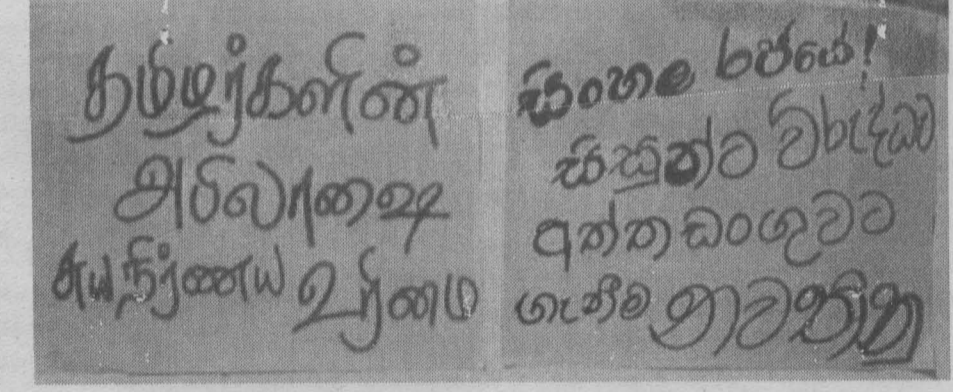 தமிழர்களின்
அபிலாஷை
சுயநிர்ணய உரிமை
සිංහල රජයේ!
සිසුන්ට විරුද්ධව
අත්තඩංගුවට
ගැනීම නවත්තනු